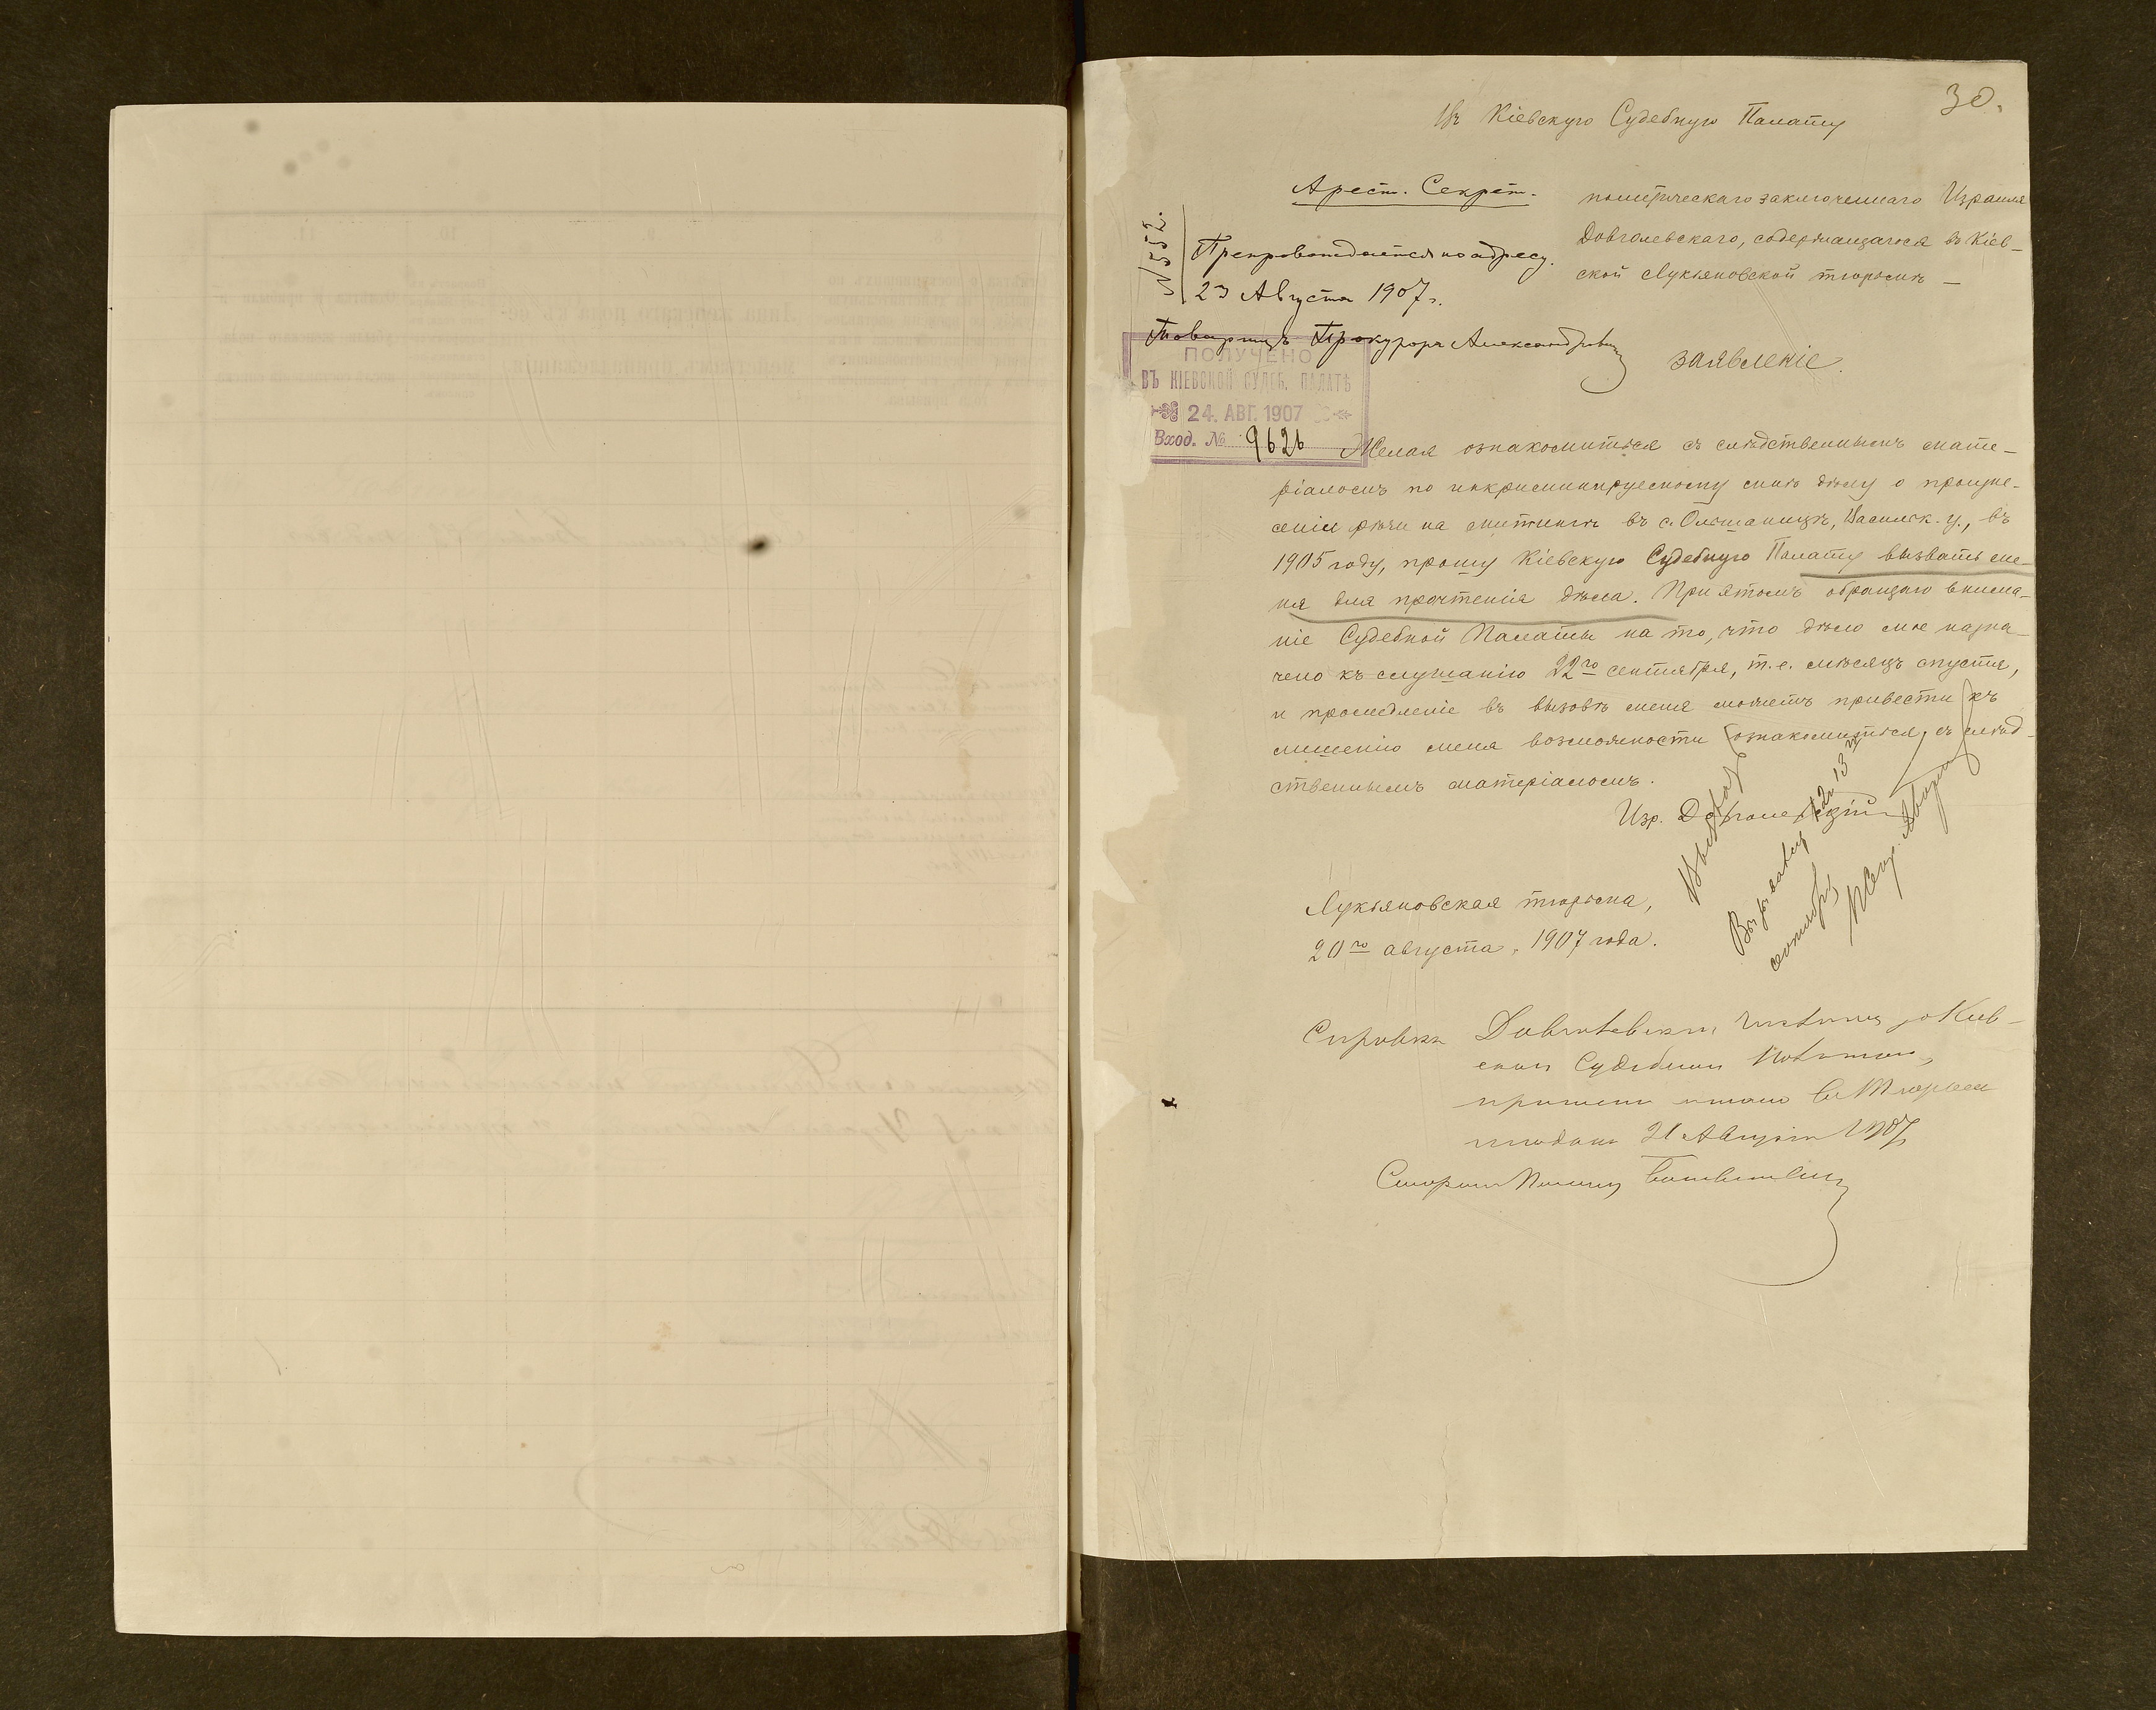 30.
Въ Кіевскую Судебную Палату
политическаго заключеннаго Израиля
Довголевскаго, содержащагося въ Кіев-
ской Лукьяновской тюрьмѣ —
заявленіе.
Арест. Секрет.
№ 552.
Препровождается по адресу.
23 Августа 1907 г.
Товарищъ Прокурора Александровичъ
ПОЛУЧЕНО
ВЪ КІЕВСКОЙ СУДЕБ. ПАЛАТѢ
24. АВГ. 1907
Вход. № 9626
Желая ознакомиться съ слѣдственнымъ мате-
ріаломъ по инкриминируемому мнѣ дѣлу о произне-
сеніи рѣчи на митингѣ въ с. Ольшаницѣ, Васильк. у., въ
1905 году, прошу Кіевскую Судебную Палату вызвать ме-
ня для прочтенія дѣла. При этомъ обращаю внима-
ніе Судебной Палаты на то, что дѣло мое назна-
чено къ слушанію 22го сентября, т. е. мѣсяцъ спустя,
и промедленіе въ вызовѣ меня можетъ привести къ
лишенію меня возможности ознакомиться съ слѣд-
ственнымъ матеріаломъ.
Изр. Довголевскій
Лукьяновская тюрьма,
20го августа, 1907 года.
Вызвать
12 и 13
сентября
Справка
Киев-
ской Судебной
21 Августа 1907